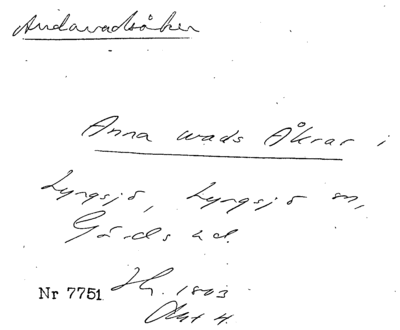 Andavadsåker
Anna wads Åkrar i
Lyngsjö, Lyngsjö sn,
Gärds hd.
Nr 7751 Jh. 1803
Okt 4.